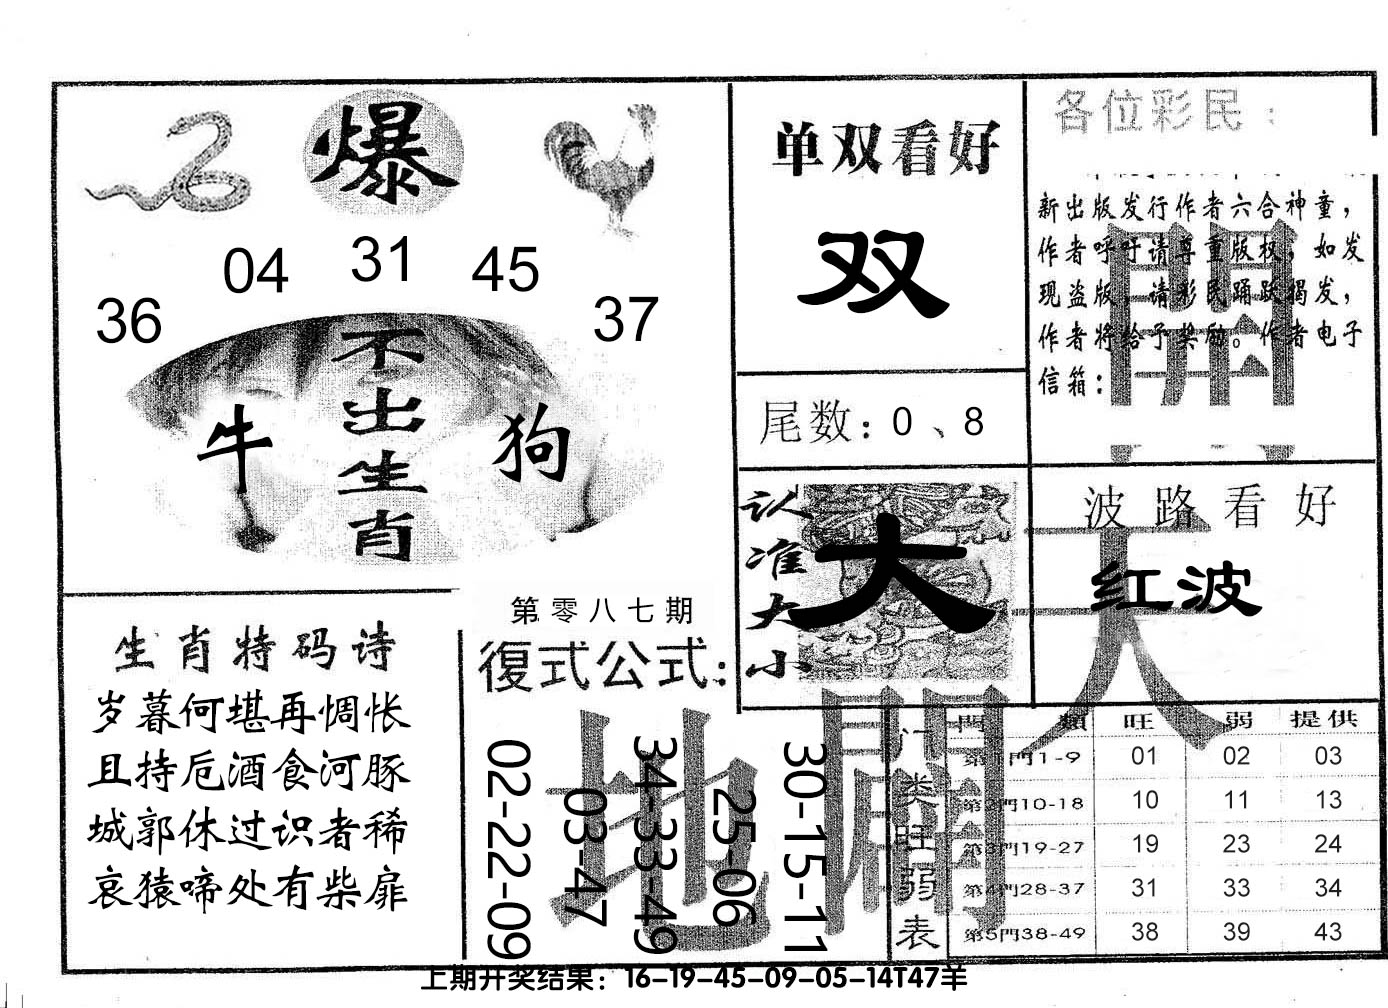 爆
04 31 45
36 37
不出生肖
牛 狗
单双看好
双
尾数：0、8
各位彩民：
新出版发行作者六合神童，
作者呼吁请尊重版权，如发
现盗版，请彩民踊跃揭发，
作者将给予奖励。作者电子
信箱：
開
认准大小
大
波路看好
红波
天
生肖特码诗
岁暮何堪再惆怅
且持卮酒食河豚
城郭休过识者稀
哀猿啼处有柴扉
第零八七期
復式公式：
02-22-09
03-47
34-33-49
25-06
30-15-11
地
闢
门类旺弱表
門類 旺 弱 提供
第1門1-9 01 02 03
第2門10-18 10 11 13
第3門19-27 19 23 24
第4門28-37 31 33 34
第5門38-49 38 39 43
上期开奖结果：16-19-45-09-05-14T47羊